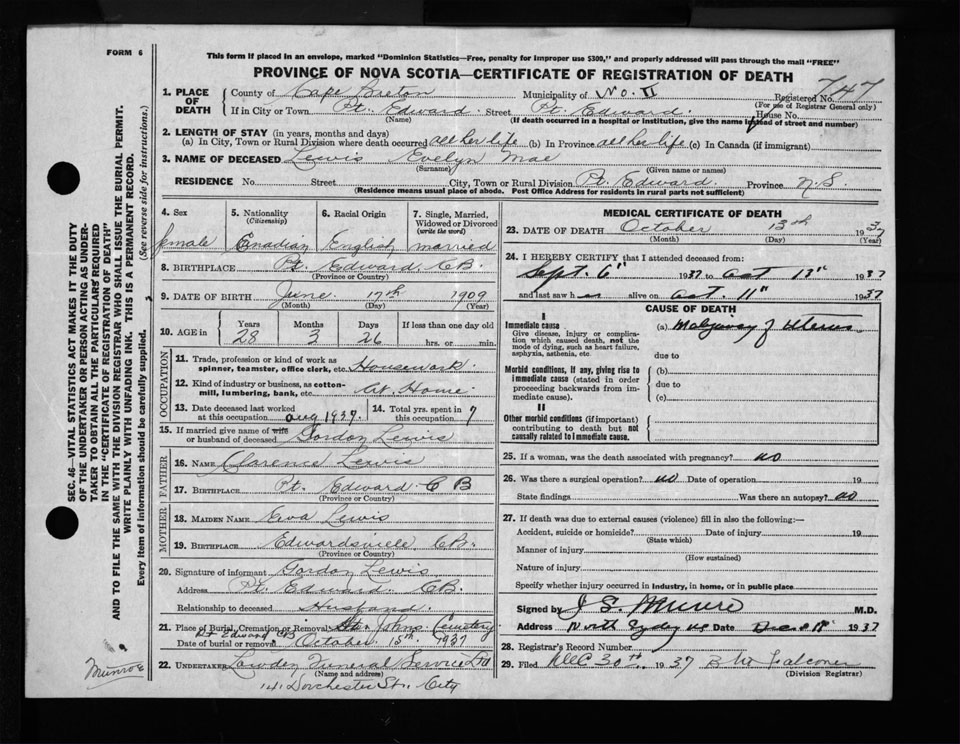 FORM 6
This form if placed in an envelope, marked "Dominion Statistics—Free, penalty for improper use $300," and properly addressed will pass through the mail "FREE"
PROVINCE OF NOVA SCOTIA—CERTIFICATE OF REGISTRATION OF DEATH
SEC. 46—VITAL STATISTICS ACT MAKES IT THE DUTY
OF THE UNDERTAKER OR PERSON ACTING AS UNDER-
TAKER TO OBTAIN ALL THE PARTICULARS REQUIRED
IN THE "CERTIFICATE OF REGISTRATION OF DEATH"
AND TO FILE THE SAME WITH THE DIVISION REGISTRAR WHO SHALL ISSUE THE BURIAL PERMIT.
WRITE PLAINLY WITH UNFADING INK. THIS IS A PERMANENT RECORD.
Every item of information should be carefully supplied. (See reverse side for instructions.)
1. PLACE OF DEATH County of Cape Breton Municipality of No. II Registered No. 747
(For use of Registrar General only)
If in City or Town Pt. Edward Street Pt. Edward House No.
(Name) (If death occurred in a hospital or institution, give the name instead of street and number)
2. LENGTH OF STAY (in years, months and days)
(a) In City, Town or Rural Division where death occurred all her life (b) In Province all her life (c) In Canada (if immigrant)
3. NAME OF DECEASED Lewis Evelyn Mae
(Surname) (Given name or names)
RESIDENCE No. Street City, Town or Rural Division Pt. Edward Province N.S
(Residence means usual place of abode. Post Office Address for residents in rural parts not sufficient)
4. Sex
female
5. Nationality (Citizenship)
Canadian
6. Racial Origin
English
7. Single, Married, Widowed or Divorced (write the word)
married
8. BIRTHPLACE Pt. Edward CB.
(Province or Country)
9. DATE OF BIRTH June 17th 1909
(Month) (Day) (Year)
10. AGE in Years Months Days If less than one day old
28 3 26 hrs. or min.
OCCUPATION
11. Trade, profession or kind of work as
spinner, teamster, office clerk, etc. Housework
12. Kind of industry or business, as cotton-
mill, lumbering, bank, etc. At Home
13. Date deceased last worked
at this occupation Aug 1937.
14. Total yrs. spent in
this occupation 7
15. If married give name of wife
or husband of deceased Gordon Lewis
FATHER
16. NAME Clarence Lewis
17. BIRTHPLACE Pt. Edward C B
(Province or Country)
MOTHER
18. MAIDEN NAME Eva Lewis
19. BIRTHPLACE Edwardsville CB.
(Province or Country)
20. Signature of informant Gordon Lewis
Address Pt. Edward CB.
Relationship to deceased Husband.
21. Place of Burial, Cremation or Removal St. Johns Cemetery
Pt Edward CB
Date of burial or removal October 15th 1937
22. UNDERTAKER Lowden Funeral Service Ltd
(Name and address)
141 Dorchester St., City
Munroe
MEDICAL CERTIFICATE OF DEATH
23. DATE OF DEATH October 13th 1937
(Month) (Day) (Year)
24. I HEREBY CERTIFY that I attended deceased from:
Sept. 6" 1937 to Oct 13" 1937
and last saw h er alive on Oct. 11" 1937
CAUSE OF DEATH
I
Immediate cause (a) Malignancy of Uterus
Give disease, injury or complica-
tion which caused death, not the
mode of dying, such as heart failure,
asphyxia, asthenia, etc. due to
Morbid conditions, if any, giving rise to
immediate cause (stated in order
proceeding backwards from im-
mediate cause).
(b)
due to
(c)
II
Other morbid conditions (if important)
contributing to death but not
causally related to immediate cause.
25. If a woman, was the death associated with pregnancy? no
26. Was there a surgical operation? no Date of operation 19
State findings Was there an autopsy? no
27. If death was due to external causes (violence) fill in also the following:—
Accident, suicide or homicide? Date of injury 19
(State which)
Manner of injury
(How sustained)
Nature of injury
Specify whether injury occurred in industry, in home, or in public place
Signed by J. S. Munro M.D.
Address North Sydney NS Date Dec 18" 1937
28. Registrar's Record Number
29. Filed Dec 30th 1937 B W Falconer
(Division Registrar)